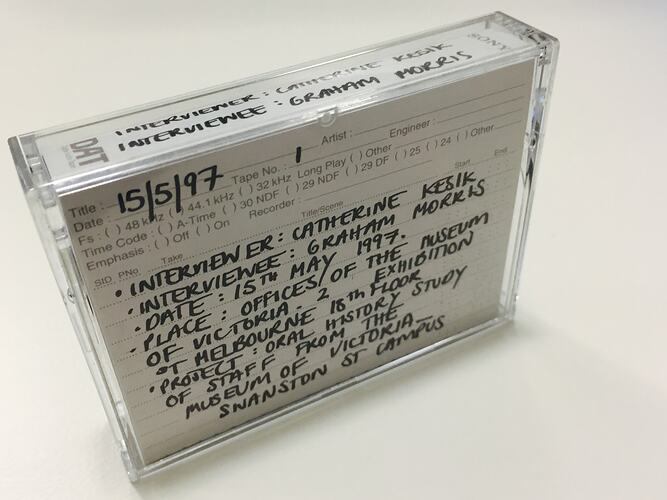 INTERVIEWER : CATHERINE KESIK
INTERVIEWEE : GRAHAM MORRIS
DAT
SONY
Title :
Date : 15/5/97 Tape No. : 1 Artist : Engineer :
Fs : ( ) 48 kHz ( ) 44.1 kHz ( ) 32 kHz Long Play ( ) Other
Time Code : ( ) A-Time ( ) 30 NDF ( ) 29 NDF ( ) 29 DF ( ) 25 ( ) 24 ( ) Other
Emphasis : ( ) Off ( ) On Recorder :
SID PNo. Take Title/Scene Start End
• INTERVIEWER : CATHERINE KESIK
• INTERVIEWEE : GRAHAM MORRIS
• DATE : 15TH MAY 1997.
• PLACE : OFFICES/OF THE MUSEUM
OF VICTORIA. 2 EXHIBITION
ST MELBOURNE 18TH FLOOR
• PROJECT : ORAL HISTORY STUDY
OF STAFF FROM THE
MUSEUM OF VICTORIA –
SWANSTON ST CAMPUS